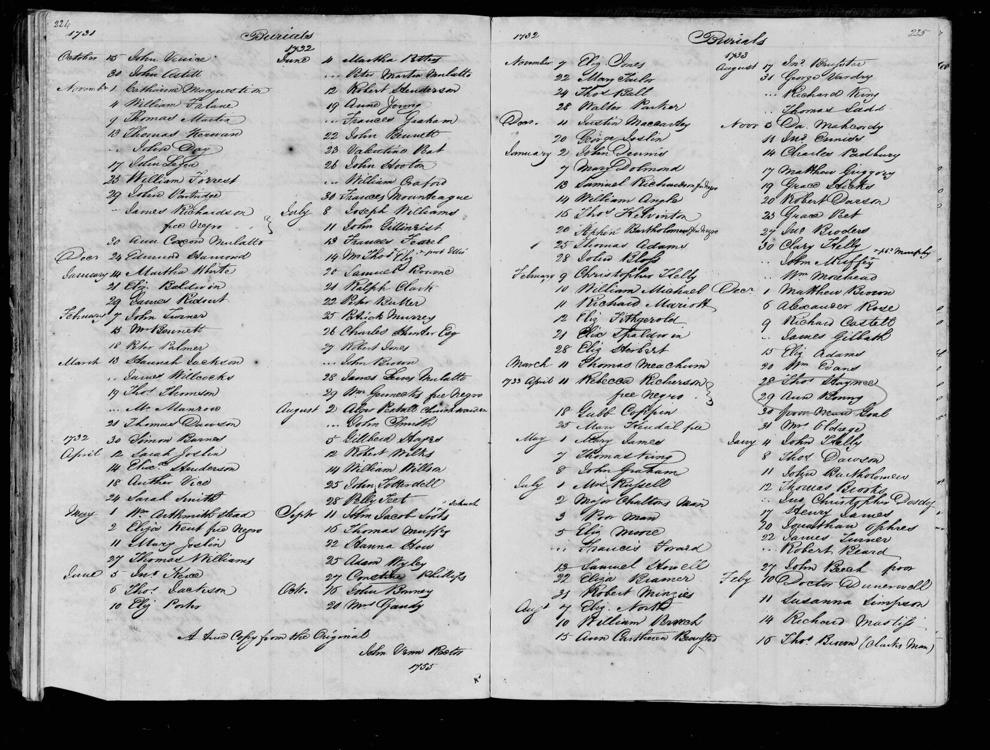 224
1731
Burials
October 15 John Vinine
30 John Astill
Novembr 1 Catherine Macquestion
4 William Palme
9 Thomas Martin
13 Thomas Harman
.. John Day
17 John
25 William Forrest
29 John Partridge
.. James Richardson
free Negro
30 Ann Coxon Mulatto
Decr 24 Edmund Hamond
January 14 Martha White
21 Eliz Baldwin
29 James
February 7 John Turner
15 Mr Bennett
18 Robr Palmer
March 13 Hannah Jackson
.. James Willcocks
19 Thos Thomson
... Mr Munrow
21 Thomas Dawson
1732 30 Simon Barnes
April 12 Sarah Joslin
14 Eliz. Henderson
18 Auther Vice
24 Sarah Smith
May 1 Wm Arthmith
2 Eliza Kent free Negro
11 Mary Joslin
27 Thomas Williams
June 5 Jno
6 Thos Jackson
10 Eliz
1732
June 4 Martha
... Peter Martin Mulatto
12 Robert Henderson
19 Anna Jonny
.. Frances Graham
22 John Bennett
23 Valentine Bat
26 John Horton
... William Craford
30 Frances Mounteague
July 8 Joseph Williams
11 John Gillcrist
13 Frances
14 Mr Thos
20 Samuel Bonne
21 Ralph Clark
22 Robr Rutter
25 Patrick Murrey
26 Charles Hunter Esq
27 Robert Jones
.. John Brown
28 James Lewis Mulatto
29 Wm free Negro
August 2 Church warden
... John Smith
5 Gilbert Hayes
12 Robert Wilks
14 William Willson
25 John Tothordell
28 Billy
Septr 11 John Jacob
16 Thomas Murffy
22 Hanna How
25 Adam Wyley
27 Phillips
Octr. 16 John Bonney
21 Mrs Gandy
A True Copy from the Original
John Venn Rector
1755
225
1732
Burials
November 7 Eliz Jones
22 Mary Tailor
24 Thos Bell
28 Walter Parker
Decr. 11 Justin Maccartey
20 George Joslin
January 2 John Dennis
7 Mary Dolmond
13 Samuel Richardson free Negro
14 William Angle
16 Thos Helvinton
20 Bartholomew free Negro
25 Thomas Adams
28 John
February 9 Christopher Kelly
10 William Michael
11 Richard Mariott
12 Eliz Fithgerold
21 Eliz Spaldwin
28 Eliz Herbert
March 11 Thomas Meachum
1733 April 11 Rebecca Richerson
free negro
18 Gubb Coffin
25 Mary Kendal free
May 1 Mary James
7 Thomas King
8 John Graham
July 1 Mrs Russell
2 Major Chaltons Man
3 Poor Man
5 Eliz Moore
.. Francis Forard
13 Samuel Howell
22 Eliza Beamer
31 Robert Minzies
Augt 7 Eliz North
10 William Branch
15 Ann
1733
August 17 Jno Brewster
31 George Vardry
.. Richard King
.. Thomas Ladd
Novr 3 Da. Mahoordy
11 Jno
14 Charles Radbury
17 Matthew Guggory
19 Grace Hicks
20 Robert Darson
23 Grace Peet
27 Jno Brooders
30 Clary Kelly
.. John Muffin
.. Wm Morehead
Decr 1 Matthew Brown
6 Alexander Rose
9 Richard Castell
.. James Gilbath
15 Eliz Adams
20 Wm Evans
28 Thos Haynes
29 Ann Bonny
30 from Goal
31 Mrs Oldrage
Jany 4 John Kelly
8 Thos Dawson
11 John Bartholomew
12 Thomas Brooke
.. Jno Christopher
17 Henry James
20 Jonathan Ophres
22 James Turner
... Robert Beard
27 John Beach poor
Feby 10 Doctor Dunerwell
11 Susanna Simpson
14 Richard Mastif
15 Thos Brown (Clarks Man)